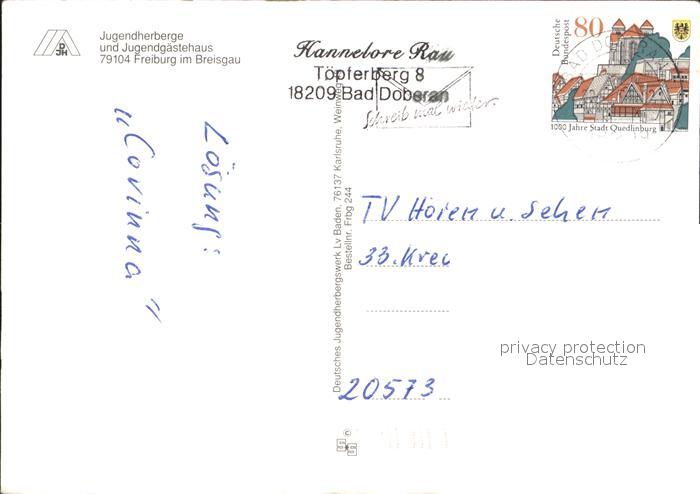 DJH
Jugendherberge
und Jugendgästehaus
79104 Freiburg im Breisgau
Lösung:
"Corinna"
Deutsches Jugendherbergswerk Lv Baden, 76137 Karlsruhe, Weinweg
Bestellnr. Frbg 244
Hannelore Rau
Töpferberg 8
18209 Bad Doberan
Schreib mal wieder.
Deutsche
Bundespost
80
1000 Jahre Stadt Quedlinburg
BAD DOBERAN
TV Hören u. Sehen
33. Kreu
20573
privacy protection
Datenschutz
©